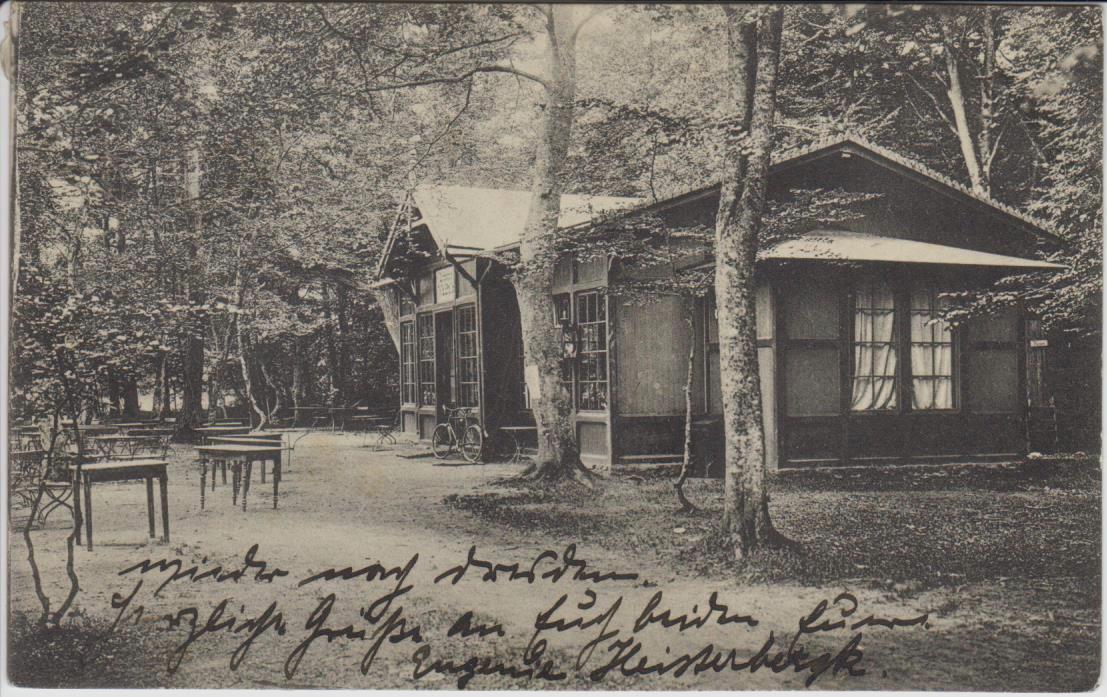 wieder nach Dresden.
Herzliche Grüße an Euch beiden Eure
Eugenie Heisterbergk.